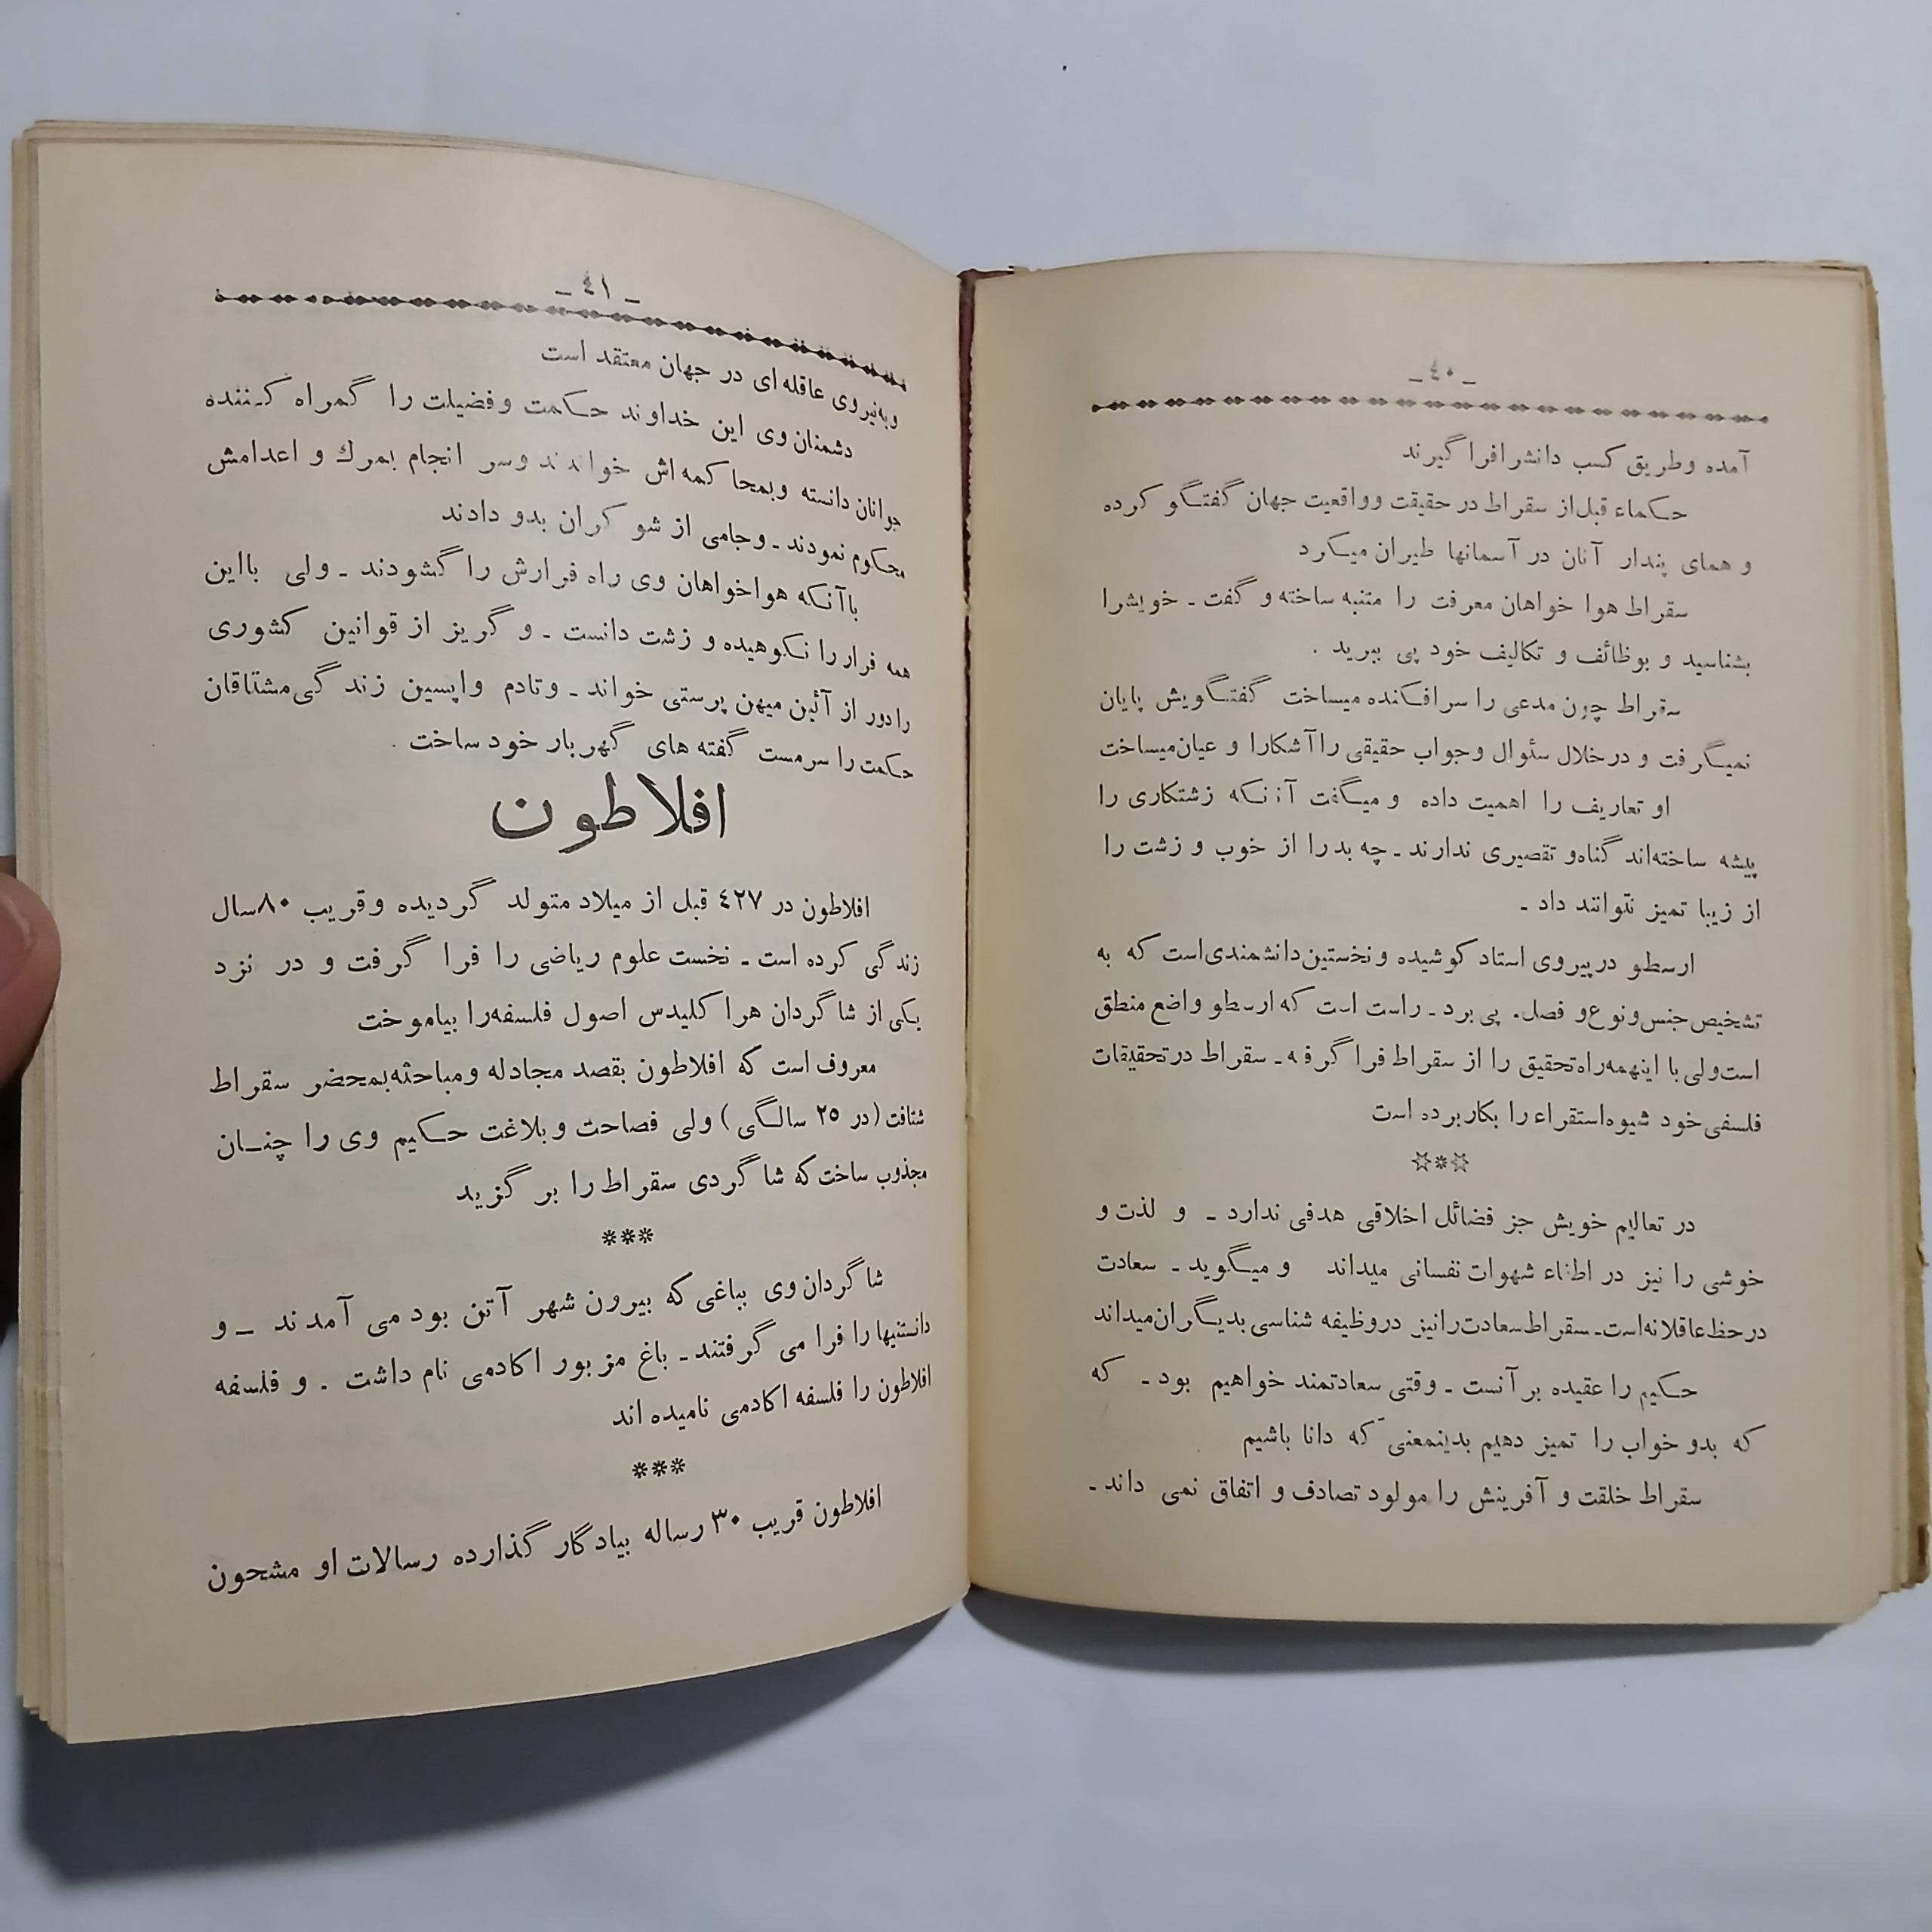 ـ ٤٠ ـ
آمده وطریق کسب دانشرافرا گیرند
حکماء قبل‌از سقراط در حقیقت وواقعیت جهان گفتگو کرده
و همای پندار آنان در آسمانها طیران میکرد
سقراط هوا خواهان معرفت را متنبه ساخته و گفت ـ خویشرا
بشناسید و بوظائف و تکالیف خود پی ببرید .
سقراط چون مدعی را سرافکنده میساخت گفتگویش پایان
نمیگرفت و درخلال سئوال وجواب حقیقی راآشکارا و عیان‌میساخت
او تعاریف را اهمیت داده و میگفت آننکه زشتکاری را
پیشه ساخته‌اند گناه‌و تقصیری ندارند ـ چه بدرا از خوب و زشت را
از زیبا تمیز نتوانند داد ـ
ارسطو درپیروی استاد کوشیده ونخستین‌دانشمندی‌است که به
تشخیص‌جنس‌ونوع‌و فصل. پی‌برد ـ راست است که ارسطو واضع منطق
است‌ولی با اینهمه‌راه‌تحقیق را از سقراط فرا گرفه ـ سقراط درتحقیقات
فلسفی‌خود شیوه‌استقراء را بکاربرده است
☆*☆
در تعالیم خویش جز فضائل اخلاقی هدفی ندارد ـ و لذت و
خوشی را نیز در اطفاء شهوات نفسانی میداند و میگوید ـ سعادت
درحظ‌عاقلانه‌است ـ سقراط‌سعادت‌رانیز دروظیفه شناسی بدیگران‌میداند
حکیم را عقیده برآنست ـ وقتی سعادتمند خواهیم بود ـ که
که بدو خواب را تمیز دهیم بدینمعنی که دانا باشیم
سقراط خلقت و آفرینش را مولود تصادف و اتفاق نمی داند ـ
ـ ٤١ ـ
وبه‌نیروی عاقله‌ای در جهان معتقد است
دشمنان وی این خداوند حکمت وفضیلت را گمراه کننده
جوانان دانسته وبمحاکمه‌اش خواندند وسر انجام بمرك و اعدامش
محکوم نمودند ـ وجامی از شوکران بدو دادند
باآنکه هواخواهان وی راه فرارش را گشودند ـ ولی بااین
همه فراررا نکوهیده و زشت دانست ـ و گریز از قوانین کشوری
رادور از آئین میهن پرستی خواند ـ وتادم واپسین زندگی‌مشتاقان
حکمت را سرمست گفته های گهربار خود ساخت .
افلاطون
افلاطون در ٤٢٧ قبل از میلاد متولد گردیده وقریب ٨٠سال
زندگی کرده است ـ نخست علوم ریاضی را فرا گرفت و در نزد
یکی از شاگردان هراکلیدس اصول فلسفه‌را بیاموخت
معروف است که افلاطون بقصد مجادله ومباحثه‌بمحضر سقراط
شتافت (در ٢٥ سالگی) ولی فصاحت وبلاغت حکیم وی را چنان
مجذوب ساخت‌که شاگردی سقراط را بر گزید
***
شاگردان وی بباغی‌که بیرون شهر آتن بود می آمدند ـ و
دانستنیها را فرا می گرفتند ـ باغ مزبور اکادمی نام داشت . و فلسفه
افلاطون را فلسفه اکادمی نامیده اند
***
افلاطون قریب ٣٠ رساله بیادگار گذارده رسالات او مشحون